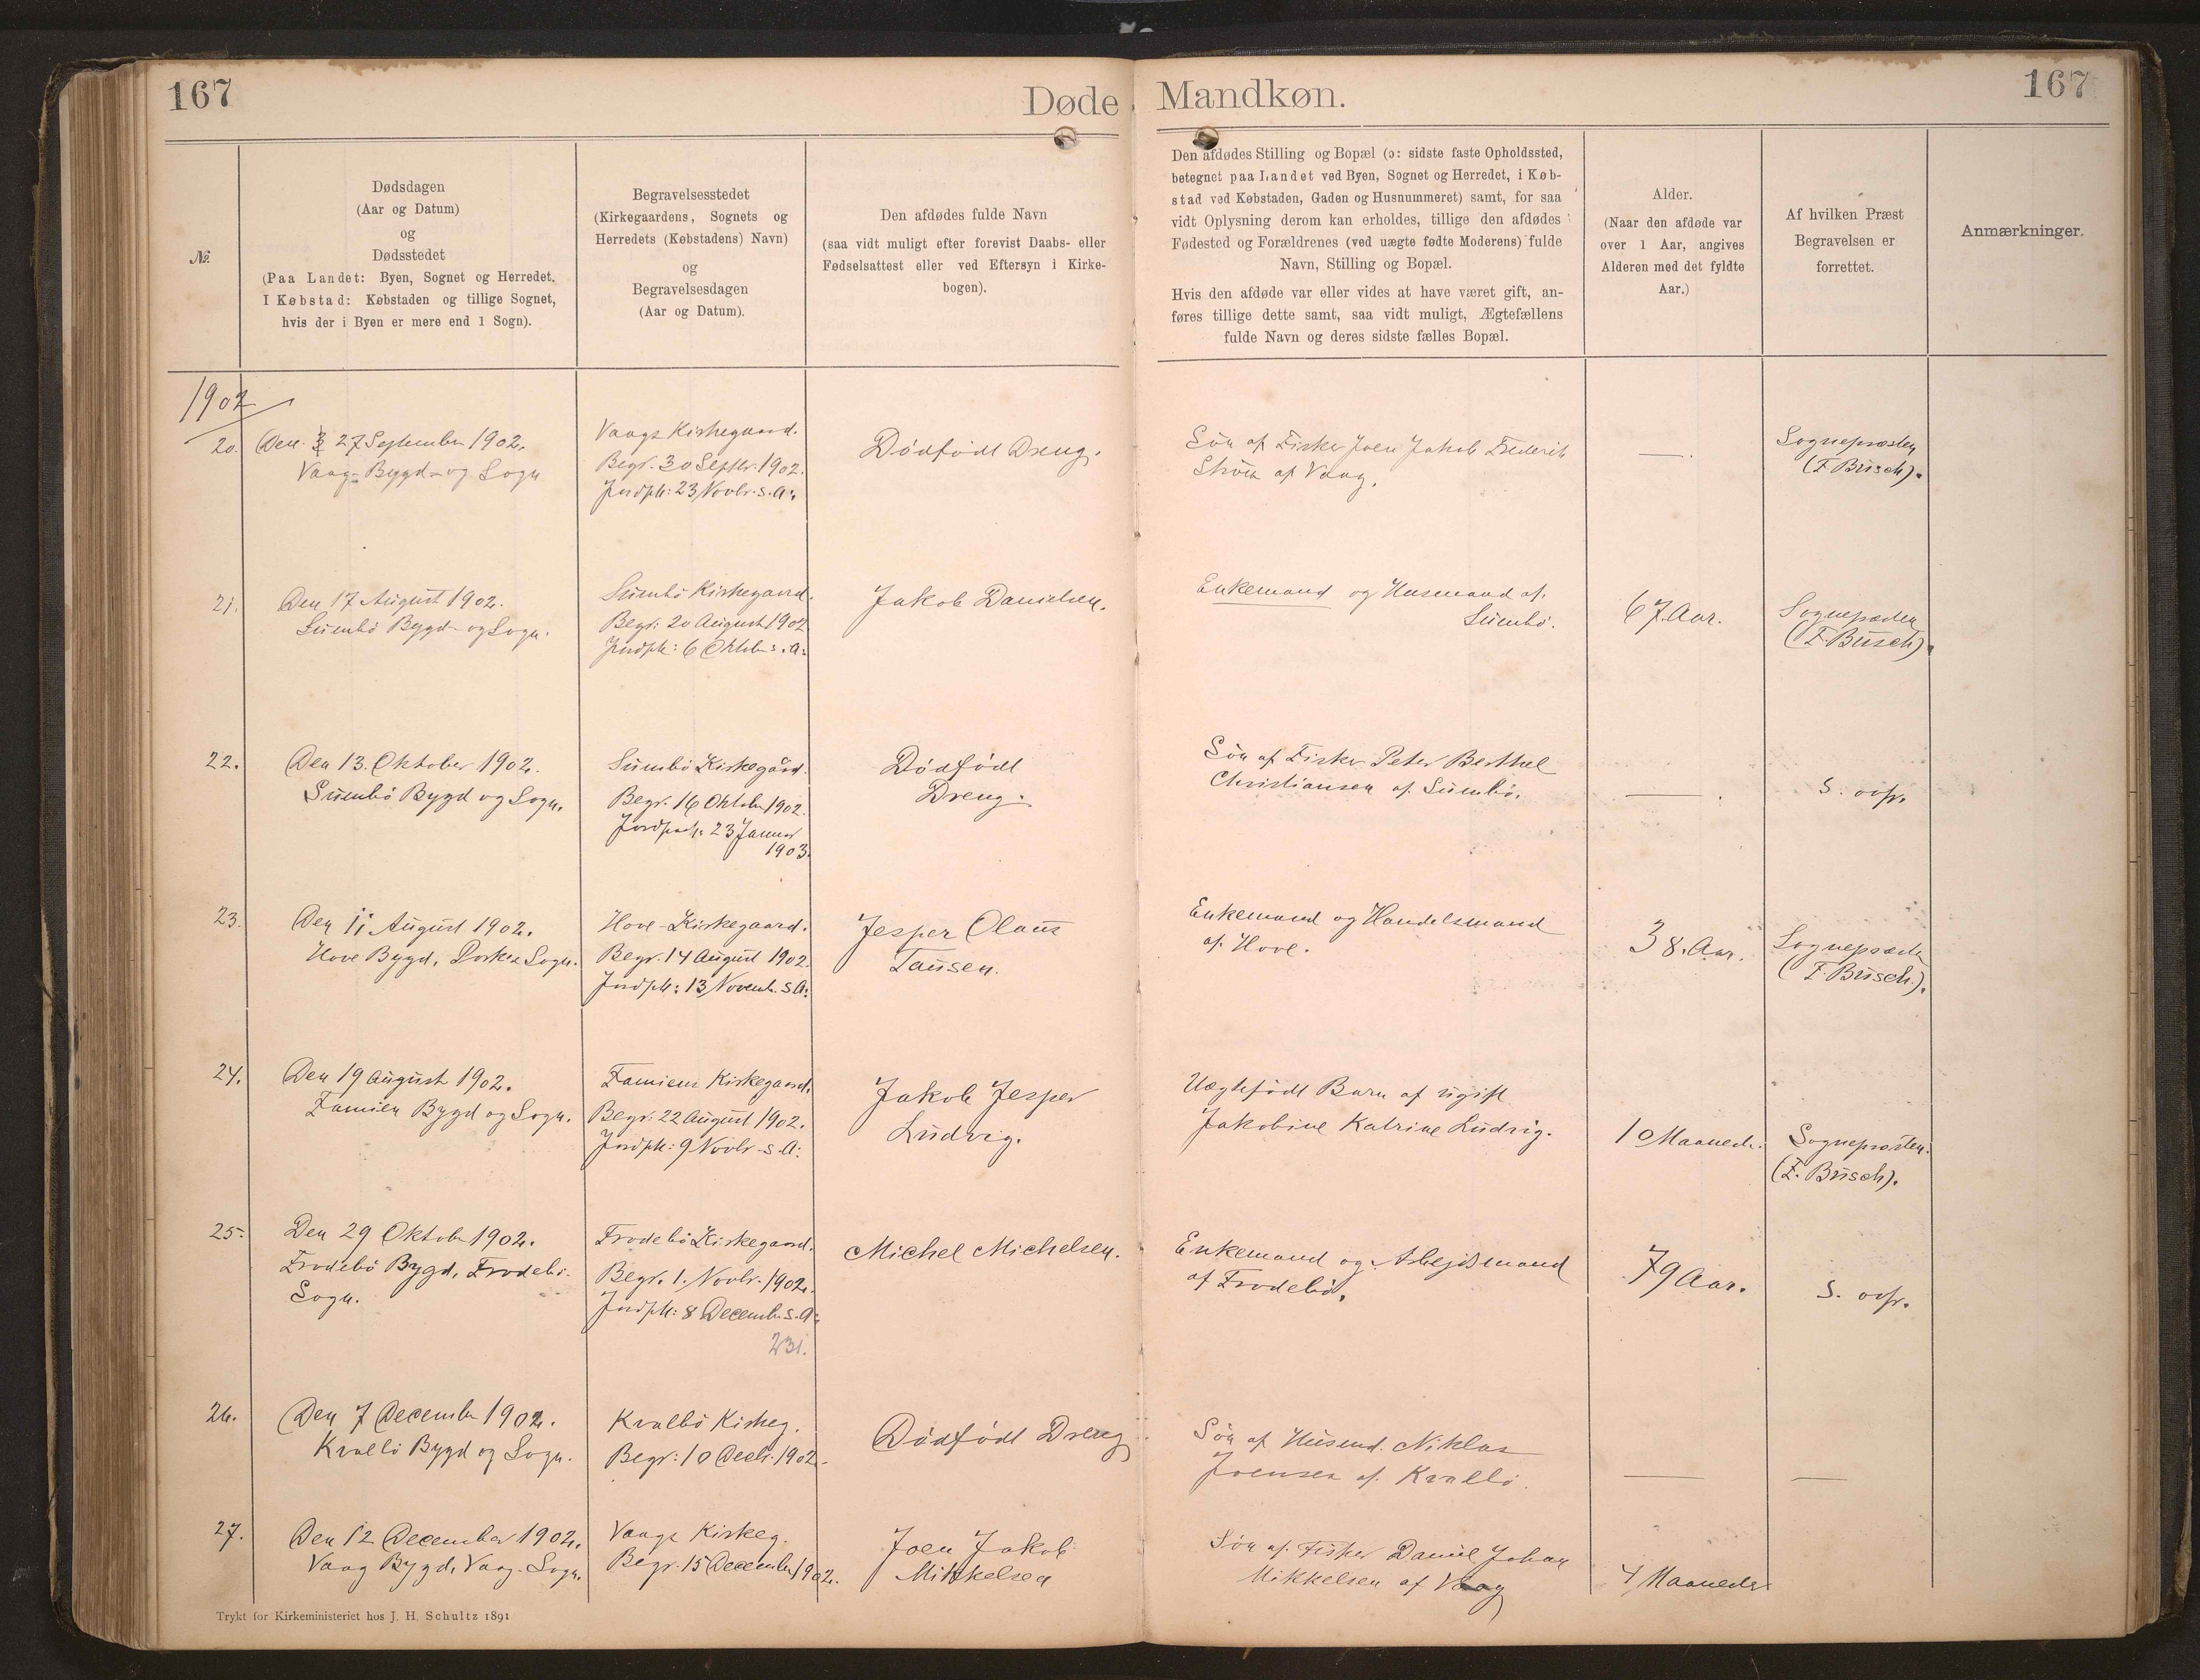 167
Døde
Mandkøn.
167
№
Dødsdagen
(Aar og Datum)
og
Dødsstedet
(Paa Landet: Byen, Sognet og Herredet.
I Købstad: Købstaden og tillige Sognet,
hvis der i Byen er mere end 1 Sogn).
Begravelsesstedet
(Kirkegaardens, Sognets og
Herredets (Købstadens) Navn)
og
Begravelsesdagen
(Aar og Datum).
Den afdødes fulde Navn
(saa vidt muligt efter forevist Daabs- eller
Fødselsattest eller ved Eftersyn i Kirke-
bogen).
Den afdødes Stilling og Bopæl (ɔ: sidste faste Opholdssted,
betegnet paa Landet ved Byen, Sognet og Herredet, i Køb-
stad ved Købstaden, Gaden og Husnummeret) samt, for saa
vidt Oplysning derom kan erholdes, tillige den afdødes
Fødested og Forældrenes (ved uægte fødte Moderens) fulde
Navn, Stilling og Bopæl.
Hvis den afdøde var eller vides at have været gift, an-
føres tillige dette samt, saa vidt muligt, Ægtefællens
fulde Navn og deres sidste fælles Bopæl.
Alder.
(Naar den afdøde var
over 1 Aar, angives
Alderen med det fyldte
Aar.)
Af hvilken Præst
Begravelsen er
forrettet.
Anmærkninger.
1902
20.
Den 27 September 1902.
Vaag- Bygd- og Sogn
Vaags Kirkegaard.
Begr. 30 Septbr. 1902.
Jordpk: 23 Novbr. s. A.
Dødfødt Dreng.
Søn af Fisker Joen Jakob Frederik
Strøm af Vaag.
—
Sognepræsten
(F. Busch).
21.
Den 17 August 1902.
Sumbø Bygd- og Sogn.
Sumbø Kirkegaard.
Begr. 20 August 1902
Jordpk: 6 Oktbr s. A.
Jakob Danielsen.
Enkemand og Husmand af
Sumbø.
67 Aar.
Sognepræsten
(F. Busch).
22.
Den 13. Oktober 1902.
Sumbø Bygd og Sogn.
Sumbø Kirkegård.
Begr. 16 Oktober 1902.
Jordpaak: 23 Januar
1903.
Dødfødt
Dreng.
Søn af Fisker Peter Berthel
Christiansen af Sumbø.
—
S. ovfr.
23.
Den 11 August 1902.
Hove Bygd, Porkere Sogn.
Hove-Kirkegaard.
Begr. 14 August 1902.
Jordpk: 13 Novemb. s. A:
Jesper Olaus
Tausen.
Enkemand og Handelsmand
af Hove.
38. Aar.
Sognepræsten
(F. Busch.).
24.
Den 19 August 1902.
Famien Bygd og Sogn.
Famiens Kirkegaard.
Begr: 22 August 1902.
Jordpk: 9 Novbr. s. A:
Jakob Jesper
Ludvig.
Uægtefødt Barn af ugift
Jakobine Katrine Ludvig.
10 Maaneder.
Sognepræsten.
(F. Busch).
25.
Den 29 Oktober 1902.
Frodebø Bygd, Frodebø-
Sogn.
Frodebø Kirkegaard.
Begr. 1. Novbr. 1902.
Jordpk: 8 Decemb. s. A:
231.
Michel Michelsen.
Enkemand og Arbejdsmand
af Frodebø.
79 Aar.
S. ovfr.
26.
Den 7 December 1902.
Kvalbø Bygd og Sogn.
Kvalbø Kirkeg.
Begr: 10 Decbr. 1902.
Dødfødt Dreng
Søn af Husmd. Niklas
Joensen af Kvalbø.
—
—
27.
Den 12 December 1902.
Vaag Bygd, Vaag- Sogn.
Vaags Kirkeg.
Begr. 15 December 1902.
Joen Jakob
Mikkelsen
Søn af Fisker Daniel Johan
Mikkelsen af Vaag
4 Maaneder
Trykt for Kirkeministeriet hos J. H. Schultz 1891